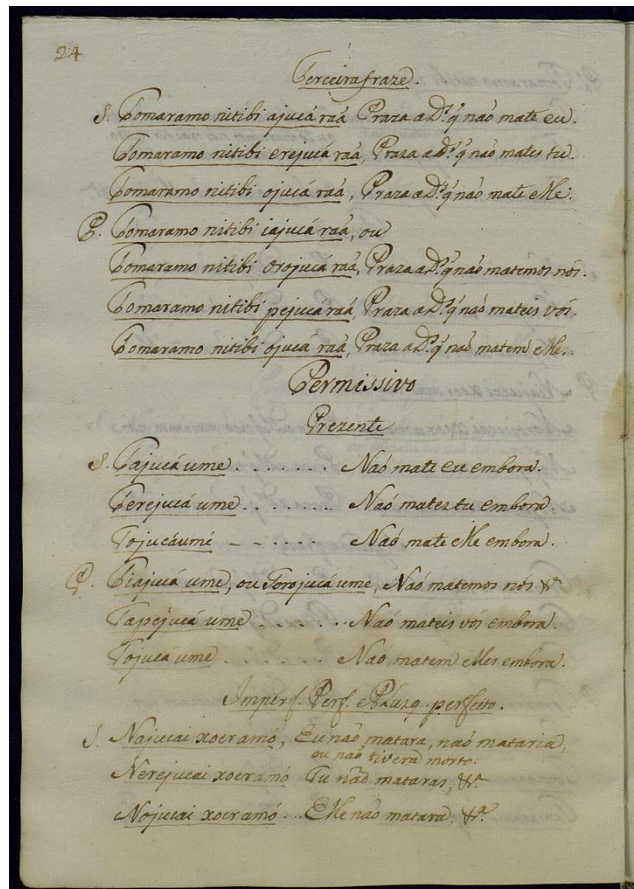 24
Terceira fraze.
S. Tomaramo nitibi ajucá raá Praza a D.s q̃ naõ mate eu.
Tomaramo nitibi erejucá raá, Praza a D.s q̃ naõ mates tu.
Tomaramo nitibi ojucá raá, Praza a D.s q̃ naõ mate elle.
P. Tomaramo nitibi iajucá raá, ou
Tomaramo nitibi orojucá raá, Praza a D.s q̃ naõ matemos nós.
Tomaramo nitibi pejucá raá, Praza a D.s q̃ naõ mateis vós.
Tomaramo nitibi ojucá raá, Praza a D.s q̃ naõ matem elles.
Permissivo
Prezente
S. Tajucá ume . . . . . . . Naõ mate eu embora.
Terejucá ume . . . . . . . Naõ mates tu embora
Tojucá umé - - - - - Naõ mate elle embora.
P. Tiajucá ume, ou Torojucá ume, Naõ matemos nós &a
Tapejucá ume . . . . . . Naõ mateis vós embora.
Tojucá ume . . . . . . Naõ matem elles embora.
Imperf. Perf. e Plusq. perfeito.
S. Najucai xoeramo, Eu naõ matara, naõ mataria,
ou naõ tivera morto.
Nerejucai xoeramó Tu naõ mataras, &a
Nojucai xoeramó . . Elle naõ matara, &a